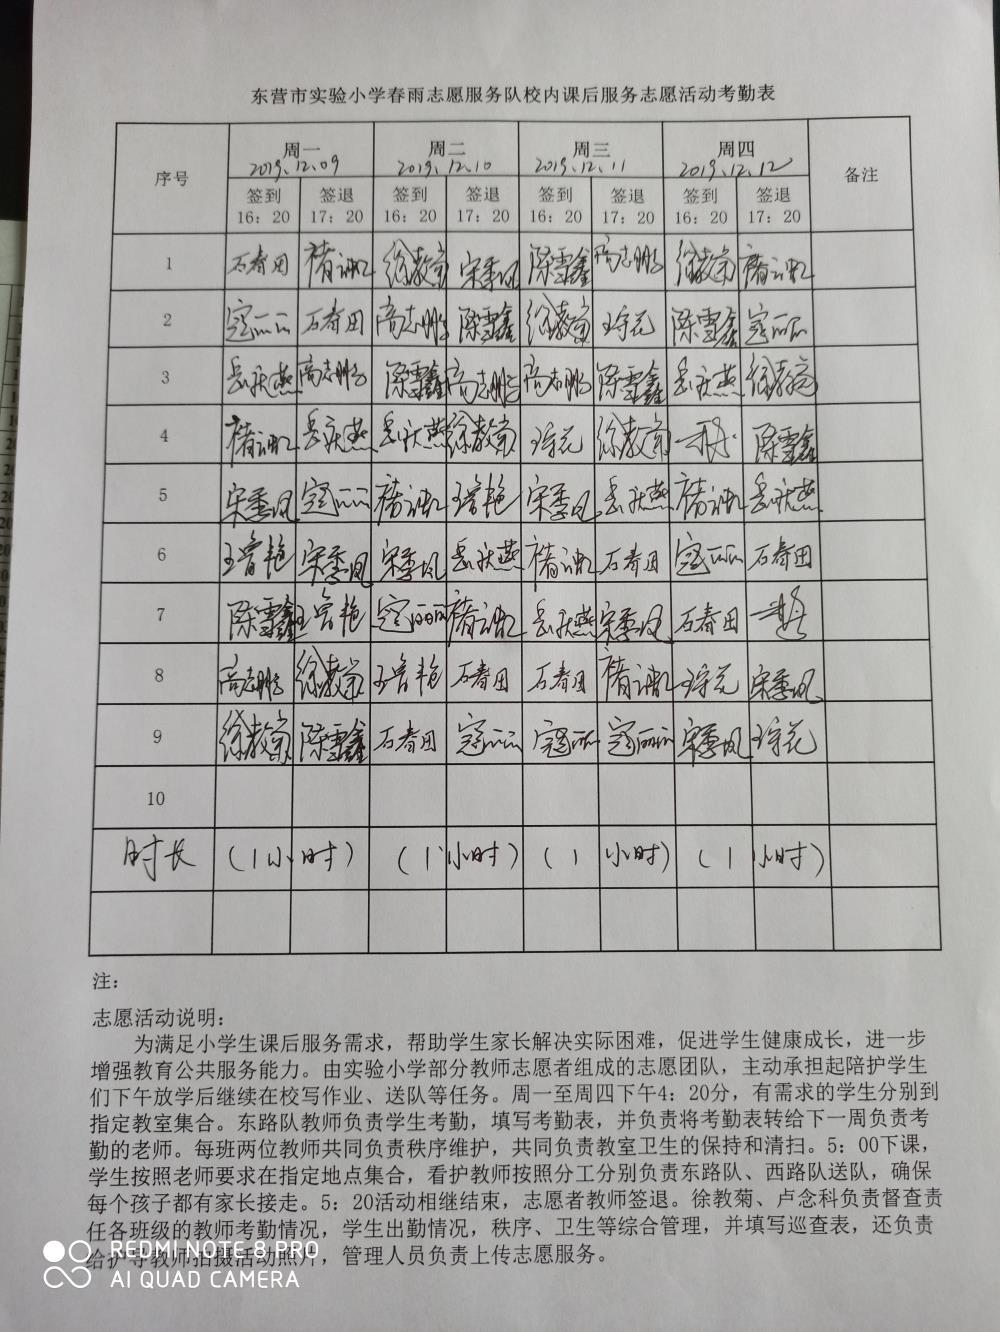 东营市实验小学春雨志愿服务队校内课后服务志愿活动考勤表
序号 周一 周二 周三 周四 备注
2019.12.09 2019.12.10 2019.12.11 2019.12.12
签到 签退 签到 签退 签到 签退 签到 签退
16：20 17：20 16：20 17：20 16：20 17：20 16：20 17：20
1 石春田 徐教菊 宋季凤 陈雪鑫 高志鹏 徐教菊
2 寇丽丽 石春田 高志鹏 陈雪鑫 徐教菊 陈雪鑫 寇丽丽
3 岳秋燕 高志鹏 陈雪鑫 高志鹏 高志鹏 陈雪鑫 岳秋燕 徐教菊
4 岳秋燕 岳秋燕 徐教菊 徐教菊 陈雪鑫
5 宋季凤 寇丽丽 王鲁艳 宋季凤 岳秋燕 岳秋燕
6 王鲁艳 宋季凤 宋季凤 岳秋燕 石春田 寇丽丽 石春田
7 陈雪鑫 王鲁艳 寇丽丽 岳秋燕 宋季凤 石春田
8 高志鹏 徐教菊 王鲁艳 石春田 石春田 宋季凤
9 徐教菊 陈雪鑫 石春田 寇丽丽 寇丽丽 寇丽丽 宋季凤
10
时长 (1小时) (1小时) (1小时) (1小时)
注：
志愿活动说明：
为满足小学生课后服务需求，帮助学生家长解决实际困难，促进学生健康成长，进一步
增强教育公共服务能力。由实验小学部分教师志愿者组成的志愿团队，主动承担起陪护学生
们下午放学后继续在校写作业、送队等任务。周一至周四下午4：20分，有需求的学生分别到
指定教室集合。东路队教师负责学生考勤，填写考勤表，并负责将考勤表转给下一周负责考
勤的老师。每班两位教师共同负责秩序维护，共同负责教室卫生的保持和清扫。5：00下课，
学生按照老师要求在指定地点集合，看护教师按照分工分别负责东路队、西路队送队，确保
每个孩子都有家长接走。5：20活动相继结束，志愿者教师签退。徐教菊、卢念科负责督查责
任各班级的教师考勤情况，学生出勤情况，秩序、卫生等综合管理，并填写巡查表，还负责
给护导教师拍摄活动照片，管理人员负责上传志愿服务。
REDMI NOTE 8 PRO
AI QUAD CAMERA